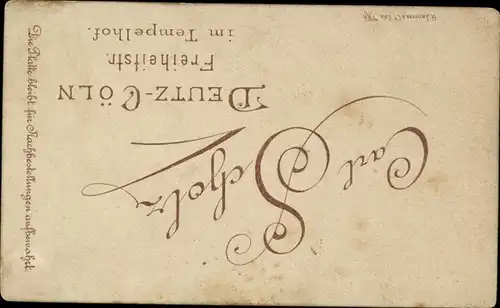 Carl Scholz
DEUTZ-CÖLN
Freiheitstr.
im Tempelhof.
Die Platte bleibt für Nachbestellungen aufbewahrt.